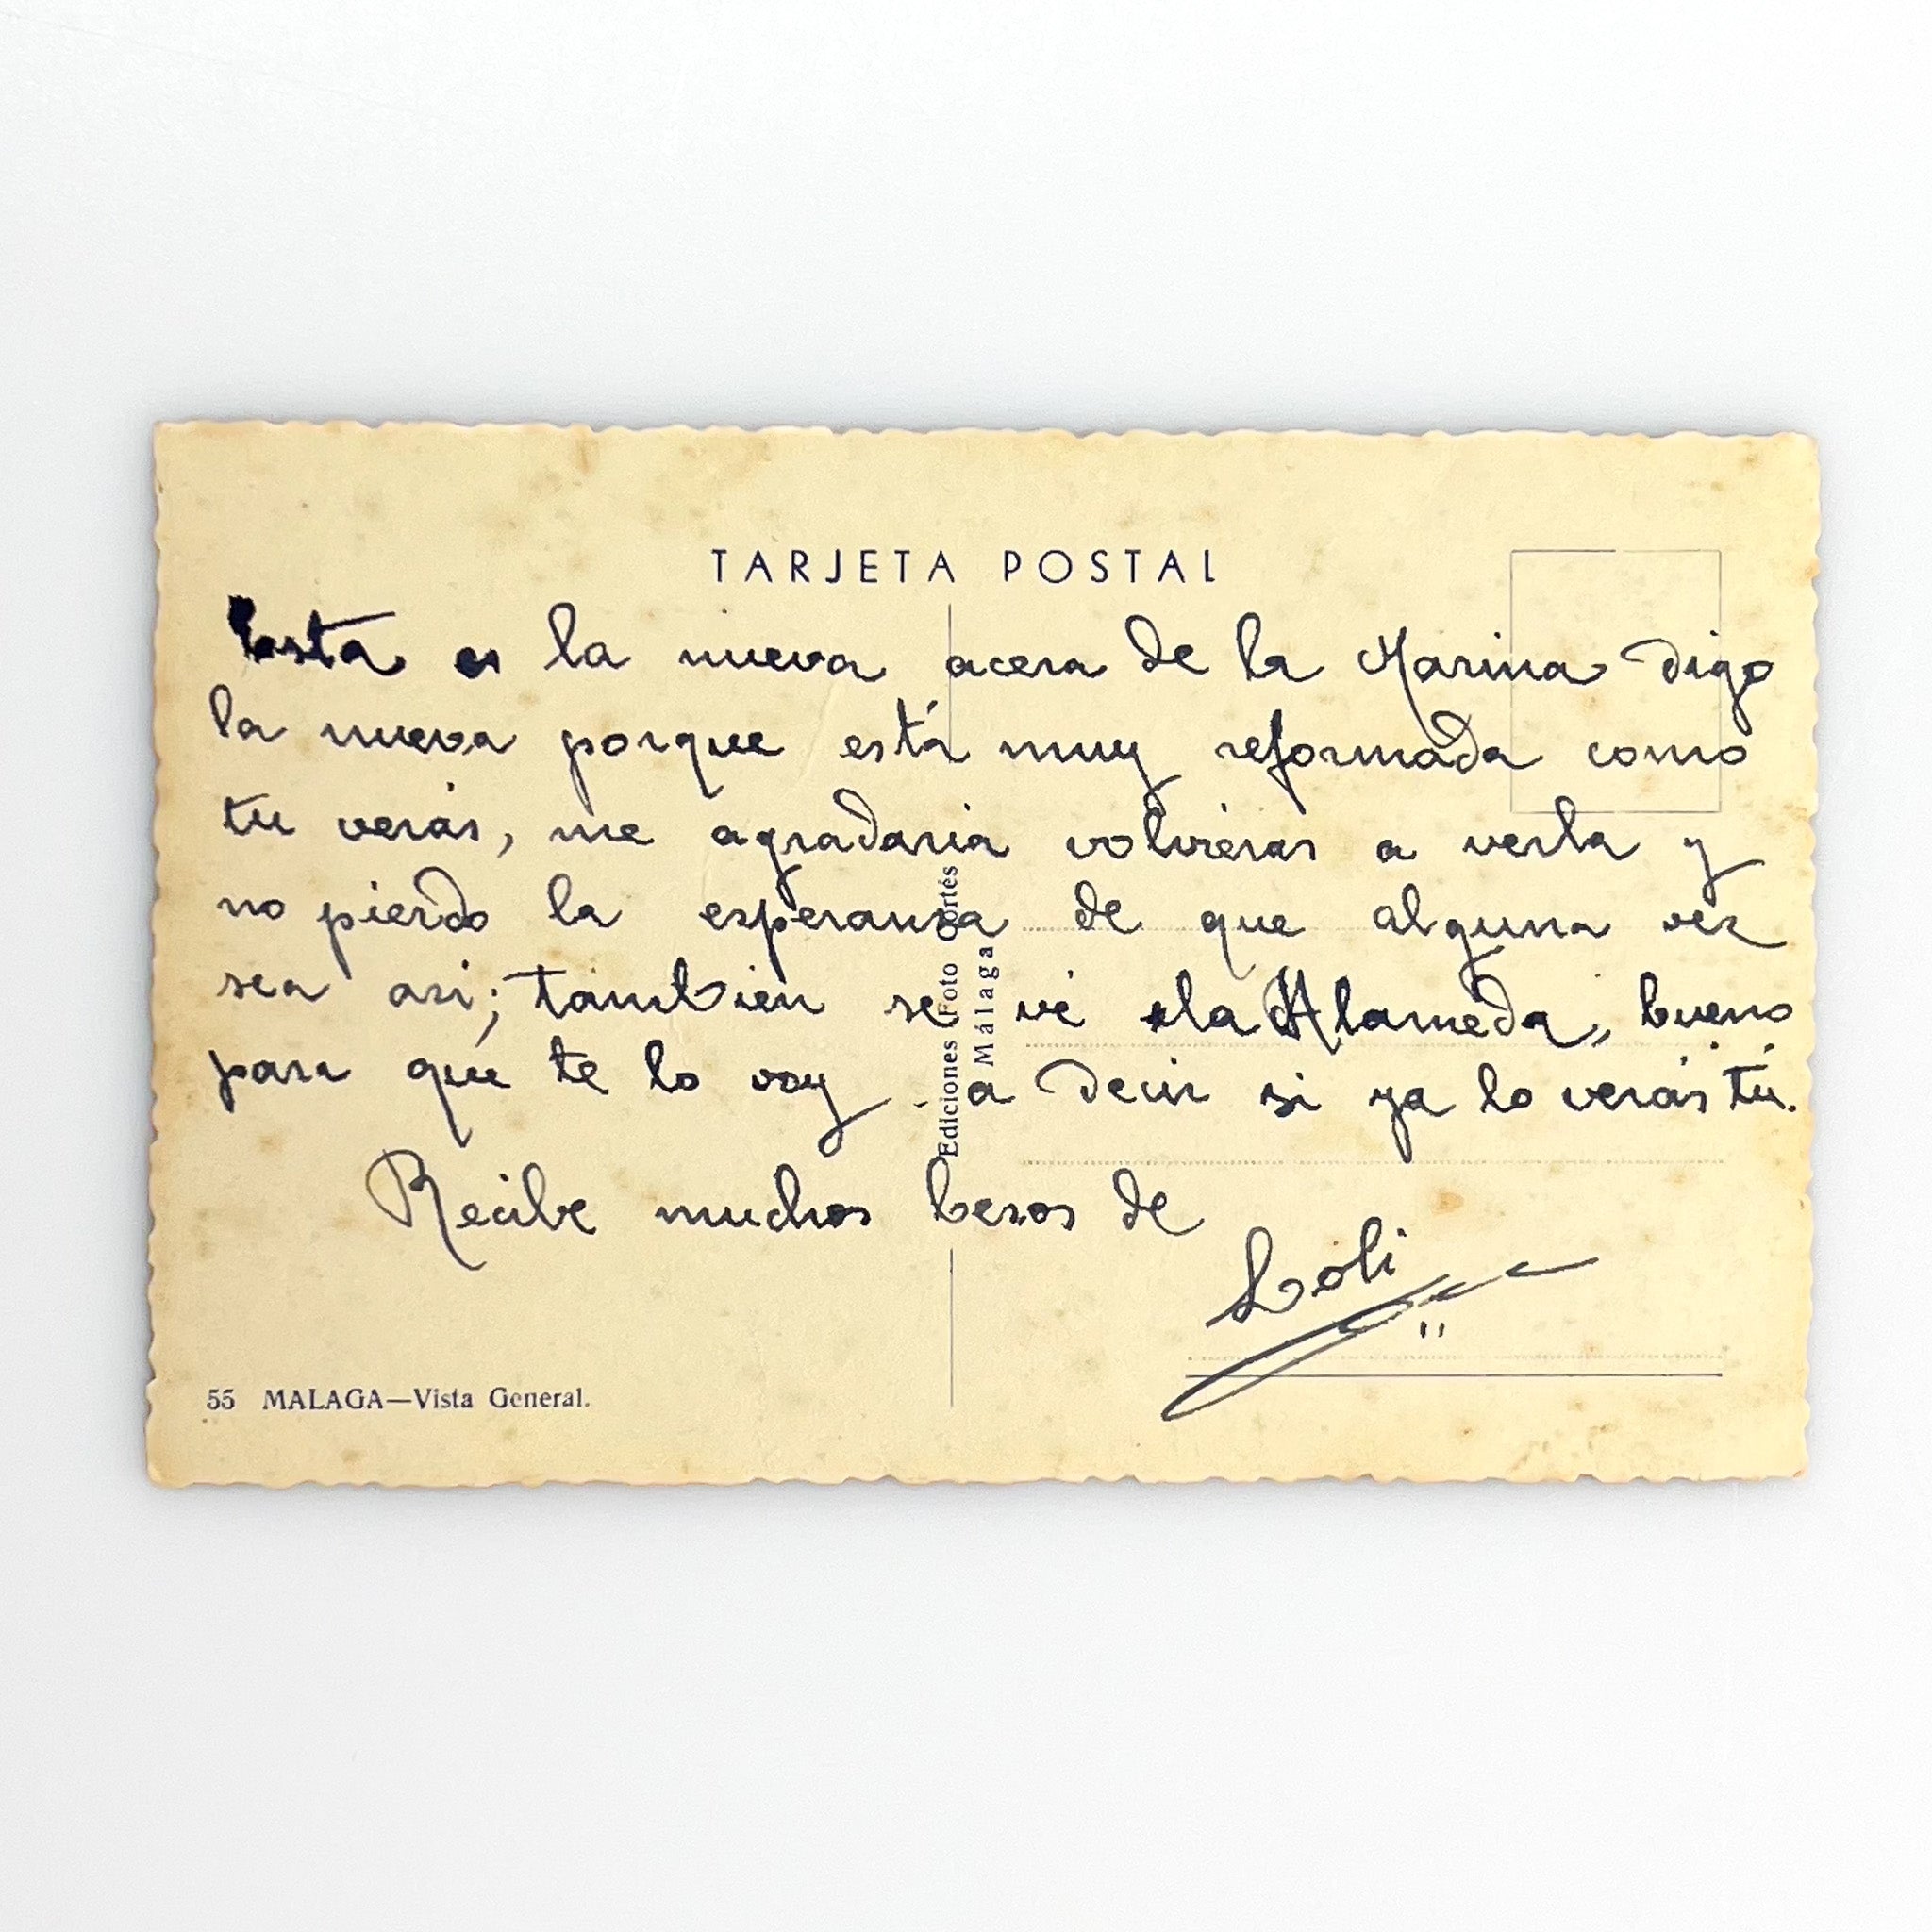 TARJETA POSTAL
Esta es la nueva acera de la Marina digo
la nueva porque está muy reformada como
tu verás, me agradaria volvieras a verla y
no pierdo la esperanza de que alguna vez
sea asi; tambien se vé la Alameda, bueno
para qué te lo voy a decir si ya lo verás tú.
Recibe muchos besos de
Loli
Ediciones Foto Cortés
Málaga
55 MALAGA—Vista General.